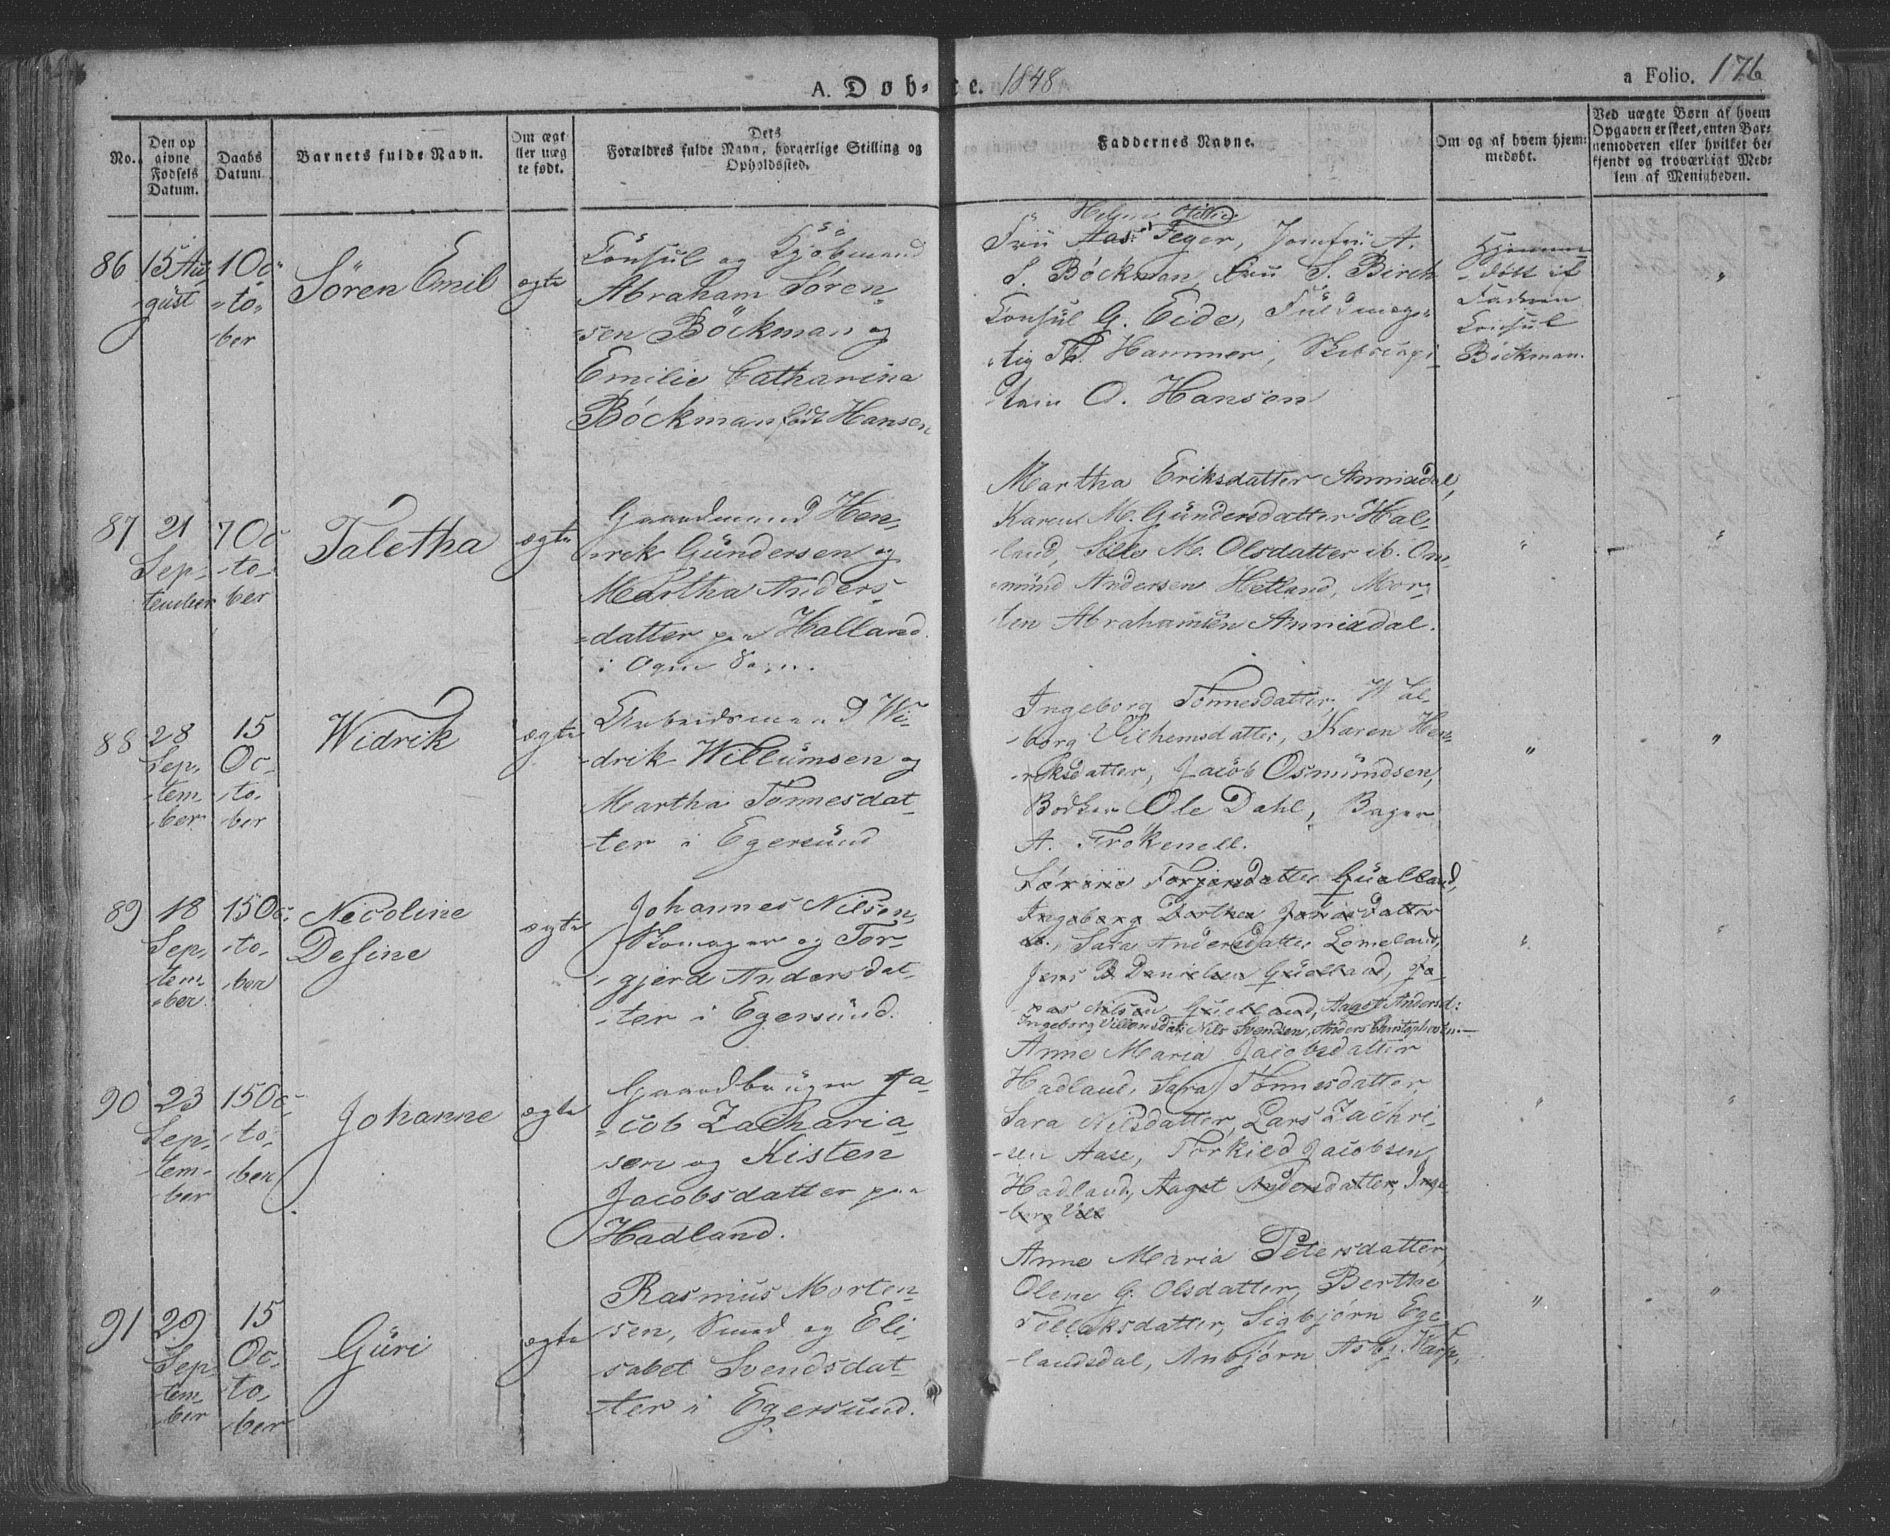 A. Døbte. 1848
a Folio. 176
No.
Den op
givne
Fødsels
Datum.
Daabs
Datum.
Barnets fulde Navn.
Om ægt
eller uæg
te født.
Dets
Forældres fulde Navn, borgerlige Stilling og
Opholdssted.
Faddernes Navne.
Om og af hvem hjem=
medøbt.
Ved uægte Børn af hvem
Opgaven er skeet, enten Bar=
nemoderen eller hvilket be=
kjendt og troværdigt Med=
lem af Menigheden.
86
15 Au
gust
10 Oc
to
ber
Sören Emil
ægte
Consul og Kjöbmand
Abraham Sören
sen Böckman og
Emilie Catharina
Böckman föd Hansen
Helene
Frü Feger, Jomfrü A.
S. Böckman, Frü S. Birch
Consul G. Eide, Füldmæg
tig Hammer,
tain O. Hansen
Hjemme
døbt af
Faderen
Consul
Böckman.
87
21
Sep
tember
7 Oc
to
ber
Taletha
ægte
Gaardmand Hen
rik Gündersen og
Martha Anders
datter paa Halland
i Ogne Sogn.
Martha Eriksdatter Anniadal,
Karen M. Gündersdatter Hal
land, Sille M. Olsdatter ib. Om
münd Andersen Hetland, Mor
ten Abrahamsen Anniadal.
" "
88
28
Sep
tem
ber
15
Oc
to
ber
Widrik
ægte
Arbeidsmand Wi
drik Willümsen og
Martha Tönnesdat
ter i Egersünd
Ingeborg Tønnesdatter, Wal
borg Vilhemsdatter, Karen Hen
riksdatter, Jacob Osmündsen,
Bødker Ole Dahl, Bager
A. Frökenell.
" "
89
18
Sep
tem
ber
15 Oc
to
ber
Nicoline
Desine
ægte
Johannes Nilsen
Skomager og Tor
gjerd Andersdat
ter i Egersünd.
Sørine Torjersdatter Güelland,
Ingeborg Dorthea Jonasdatter
ib., Sara Andersdatter Lomeland,
Jens B Danielsen Güelland, Jo
nas Nilsen Güelland, Aagot Andersd:
Ingeborg Villomsdat: Nils Svendsen, Anders Christophersen.
" "
90
23
Sep
tem
ber
15 Oc
to
ber
Johanne
ægte
Gaardbrüger Ja
cob Zacharia
sen og Kisten
Jacobsdatter paa
Hadland.
Anne Maria Jacobsdatter
Hadland, Sara Tönnesdatter
Sara Nilsdatter, Lars Zachri
sen Aase, Torkied Jacobsen
Hadland, Aagot Andersdatter, Inge
borg Vill
" "
91
29
Sep
tem
ber
15
Oc
to
ber
Güri
ægte
Rasmus Morten
sen, Smed og Eli
sabet Svendsdat
ter i Egersund.
Anne Maria Petersdatter,
Olene G. Olsdatter, Berthe
Tollaksdatter, Sigbjørn Ege
landsdal, Anbjörn Asbj.
" "